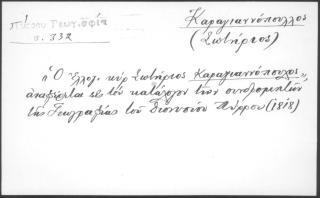 Πύρρου Γεωγραφία
σ. 332
Καραγιαννόπουλλος
(Σωτήριος)
"Ὁ Ἐλλογ. κύρ Σωτήριος Καραγιαννόπουλος"
ἀναφέρεται εἰς τόν κατάλογον τῶν συνδρομητῶν
τῆς Γεωγραφίας τοῦ Διονυσίου Πύρρου (1818)